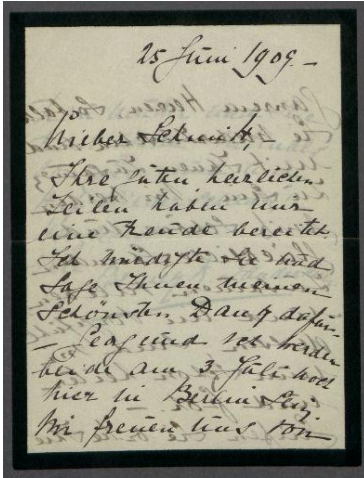 25 Juni 1909. –
Lieber Schmidt, –
Ihre guten herzlichen
Zeilen haben mir
eine Freude bereitet.
Ich würdigte sie und
sage Ihnen meinen
schönsten Dank dafür.
– und ich werden
beide am 3. Juli noch
hier in Berlin sein.
Wir freuen uns von